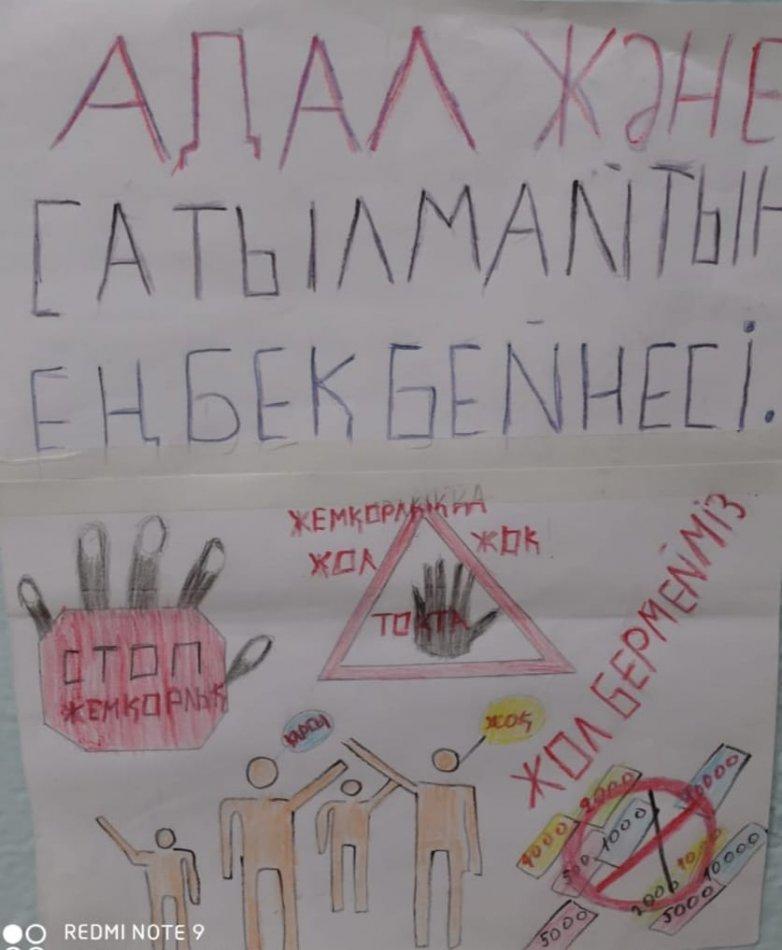 АДАЛ ЖӘНЕ
САТЫЛМАЙТЫН
ЕҢБЕК БЕЙНЕСІ.
ЖЕМҚОРЛЫҚҚА
ЖОЛ ЖОК
ТОҚТА
СТОП
ЖЕМҚОРЛЫҚ
ЖОЛ БЕРМЕЙМІЗ
ҚАРСЫ
ЖОҚ
2000
10000
4000
500
1000
10000
2000
5000
5000
REDMI NOTE 9